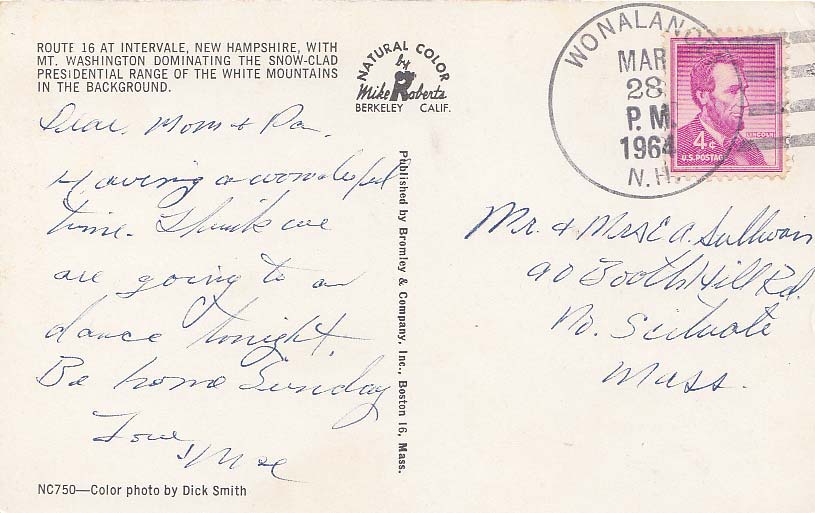 ROUTE 16 AT INTERVALE, NEW HAMPSHIRE, WITH
MT. WASHINGTON DOMINATING THE SNOW-CLAD
PRESIDENTIAL RANGE OF THE WHITE MOUNTAINS
IN THE BACKGROUND.
NATURAL COLOR
by
Mike Roberts
BERKELEY CALIF.
WONALANC
MAR
28
P. M.
1964
N.H.
4¢
LINCOLN
U.S. POSTAGE
Dear Mom & Da.
Having a wonderful
time. Think we
are going to a
dance tonight.
Be home Sunday
Love,
Published by Bromley & Company, Inc., Boston 16, Mass.
Mr. & Mrs E A. Sullivan
90 Booth Hill Rd.
No. Scituate
Mass.
NC750—Color photo by Dick Smith